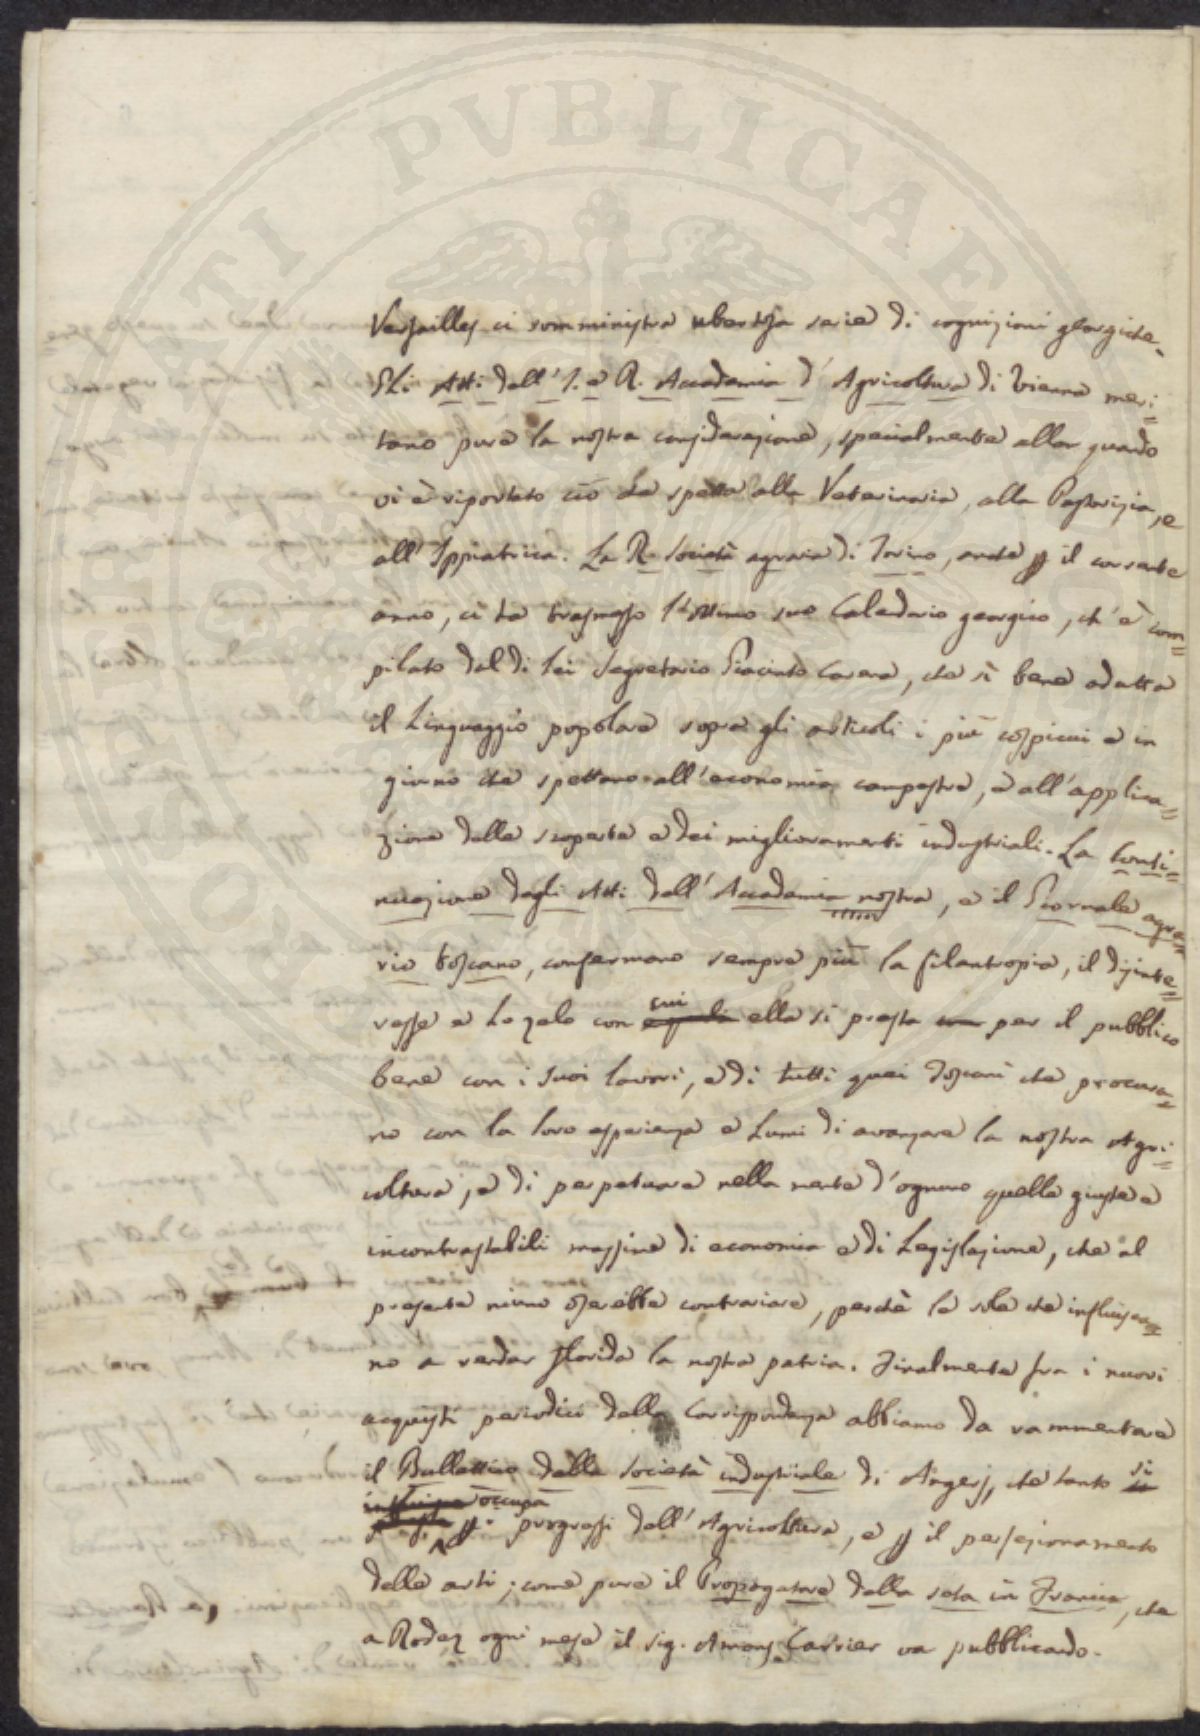 PVBLICAE
Versailles ci somministra ubertosa serie di cognizioni georgiche.
Gli Atti dell' I. e R. Accademia d' Agricoltura di Vienna meri=
tano pure la nostra considerazione, specialmente allor quando
vi è riportato ciò che spetta alla Veterinaria, alla Pastorizia, e
all' Ippiatrica. La R. Società agraria di Torino, anche p il corrente
anno, ci ha trasmesso l' ottimo suo Calendario georgico, ch' è com=
pilato dal di lei Segretario Giacinto Carena, che sì bene adatta
il Linguaggio popolare sopra gli articoli i più cospicui e in
giorno che spettano all' economia campestre, e all' applica=
zione delle scoperte e dei miglioramenti industriali. La Conti=
nuazione degli Atti dell' Accademia nostra, e il Giornale agra=
rio toscano, confermano sempre più la filantropia, il disinte=
resse e lo zelo con cui ella si presta per il pubblico
bene con i suoi lavori, e di tutti quei Toscani che procura=
no con la loro esperienza e Lumi di avanzare la nostra Agri=
coltura, e di perpetuare nella mente d' ognuno quelle giuste e
incontrastabili massime di economia e di Legislazione, che al
presente niuno oserebbe contrariare, perchè le sole che influisca=
no a render florida la nostra patria. Finalmente fra i nuovi
acquisti periodici della Corrispondenza abbiamo da rammentare
il Bullettino della Società industriale di Angers, che tanto si
occupa
p i progressi dell' Agricoltura, e p il perfezionamento
delle arti; come pure il Propagatore della seta in Francia, che
a Rodez ogni mese il Sig. Amans Carrier va pubblicando.